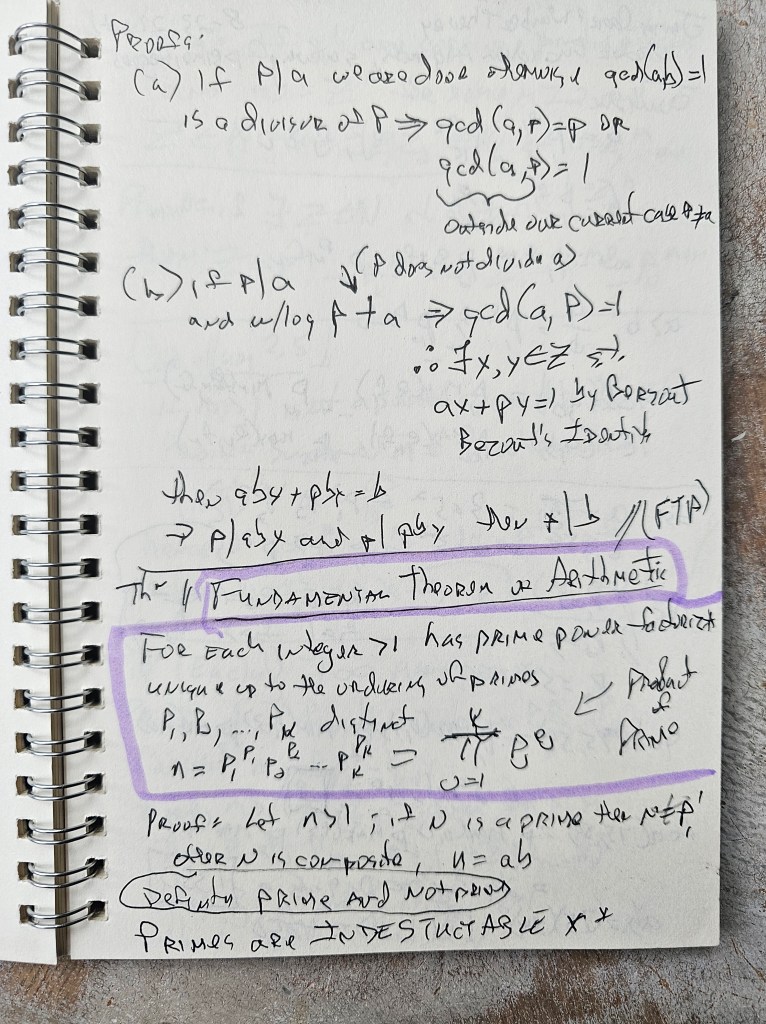 Proofs:
(a) if p|a we are done otherwise gcd(a,b)=1
is a divisor of P ⇒ gcd(a,p)=p OR
gcd(a,p)=1
outside our current case p≠a
(P does not divide a)
(b) if p|a
and w/log p∤a ⇒ gcd(a,P)=1
∴ ∃x,y∈Z s.t.
ax+py=1 by Bezout
Bezout's Identity
then aby+pbx=b
⇒ p|aby and p|pby then p|b //(FTP)
Thm // FUNDAMENTAL Theorem of Arithmetic
For Each integer >1 has prime power
unique up to the ordering of primes
P₁, P₂, ..., Pₖ distinct
Product
of
Primo
n = P₁ P₂ ... Pₖ = π
Proof: Let n>1; if N is a prime then
other N is composite, n = ab
prime and not prime
PRIMES ARE INDESTUCTABLE **